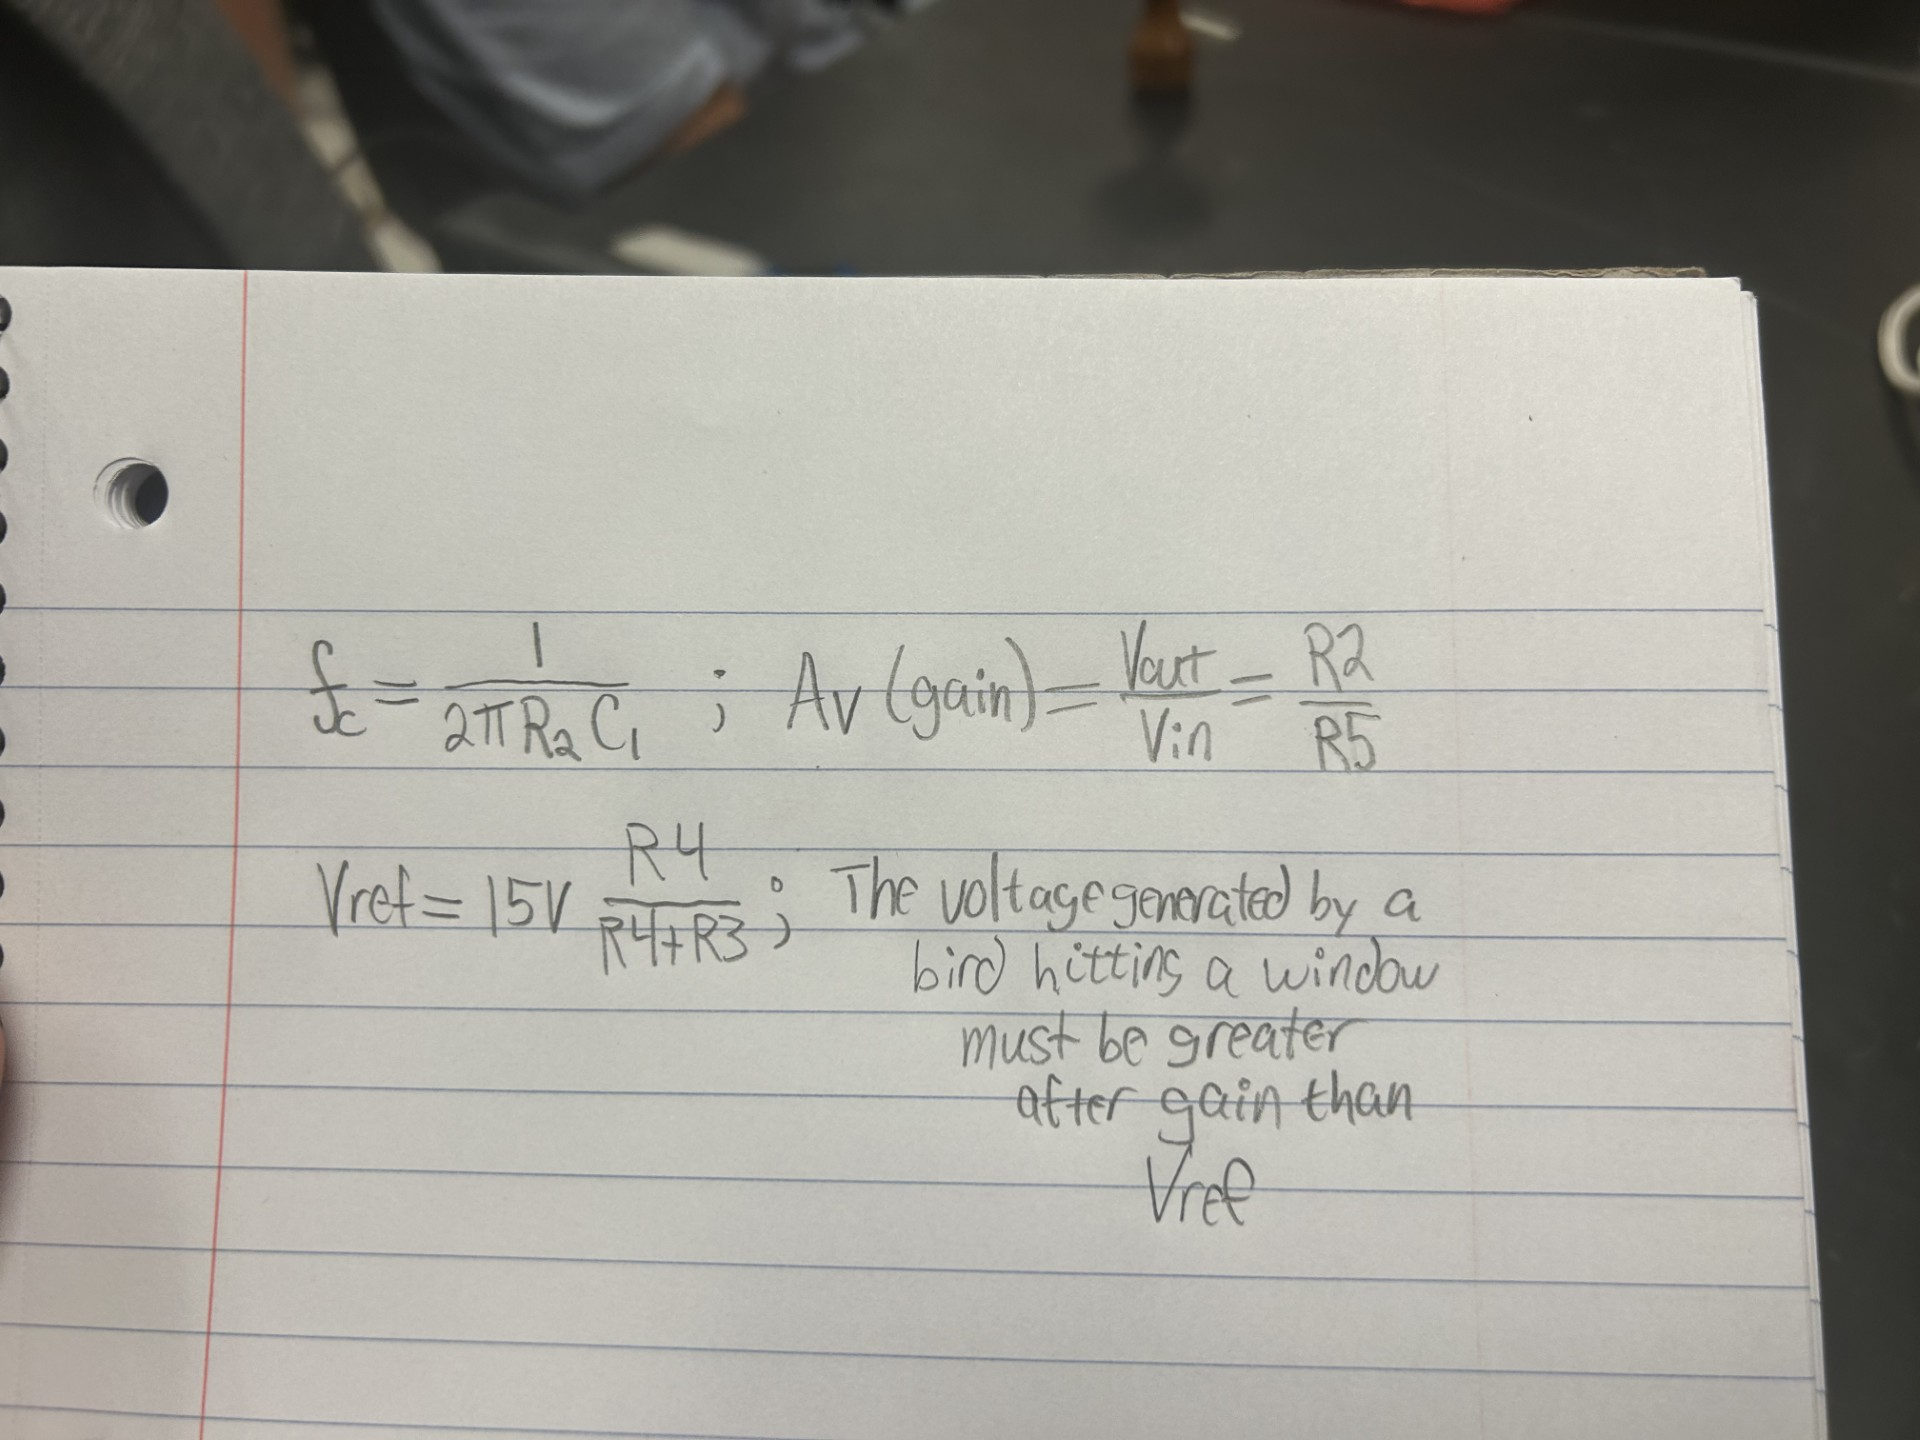 fc = 1/(2πR₂C₁) ; Av (gain) = Vout/Vin = R2/R5
Vref = 15V R4/(R4+R3) ; The voltage generated by a
bird hitting a window
must be greater
after gain than
Vref